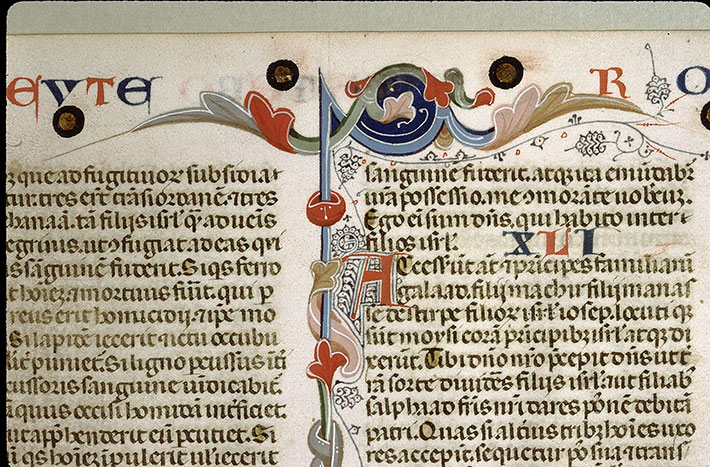 EVTE RO
que ad fugitiuor subsidia
tur. tres erūt trās iordanē. ⁊ tres
chanaā. tā filijs isrl̄ q̄ aduenis
egrinis. ut ꝯfugiat ad eas qui
s sāguinē fuderit. Si qs ferro
mortuus fuit. qui ꝑ
reus erit homicidij. ⁊ ipe mo
Si lapidē iecerit ⁊ ictu occubu
punietur. Si ligno ꝑcussus
cussoris sanguine uīdicabit
inquus occisi homicidā īterficiet.
ut appͥhenderit eū ꝑcutiet. Si
qs hoīez īpulerit uł iecerit
sanguinē fuderit. atq; ita emūdabr̄
ur̄a possessio. me ꝯmorāte uobcuz.
Ego ei sum dn̄s. qui habito inter
filios isrl̄.
XLI
Accesserūt aūt ⁊ pͥncipes familiarū
galaad. filij machir filij manas
se de stirpe filior isrl̄ ioseph. locuti q;
sūt moysi corā pͥncipibz isrl̄ atq; di
xerūt. Tibi dn̄o nr̄o p̄cepit dn̄s ut t
rā sorte diuides filijs isrl̄. ⁊ ut filiab
salphaad fr̄is nr̄i dares possōnē debitā
patri. Quas si altius tribz hoīes uxo
res accepīt. sequetur possō sua ⁊ trans